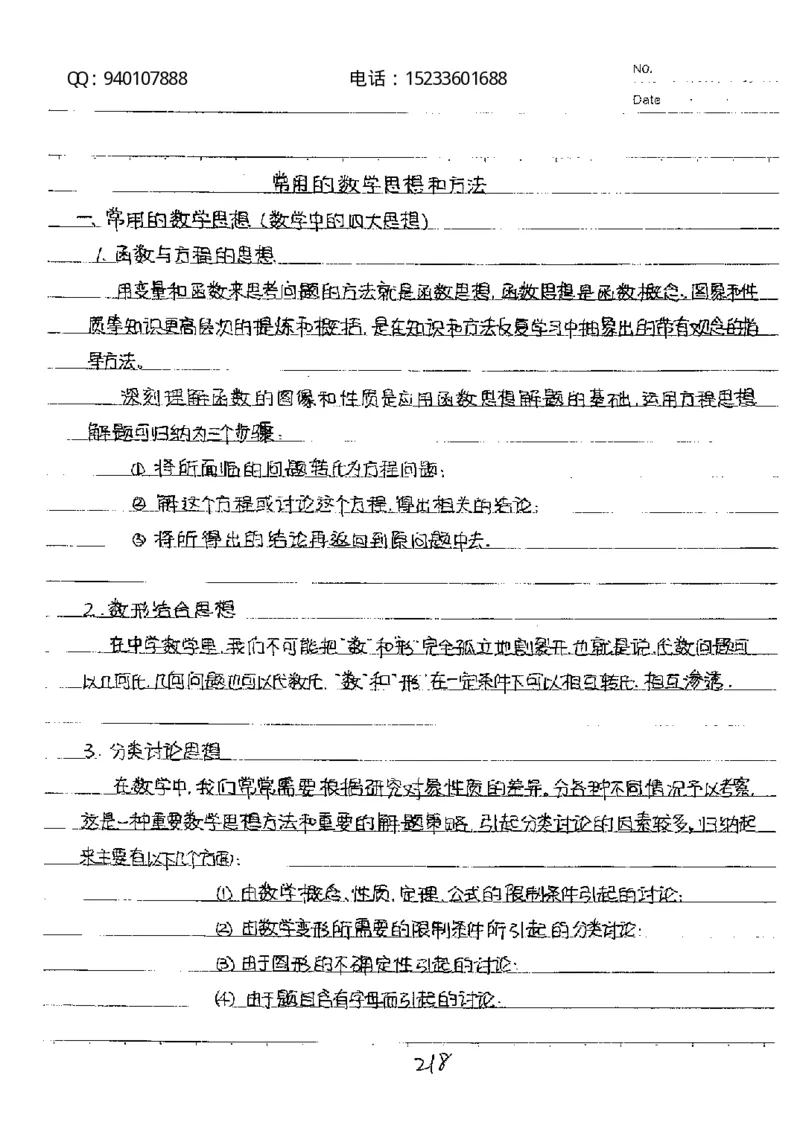 QQ：940107888 电话：15233601688 No.
Date
常用的数学思想和方法
一、常用的数学思想（数学中的四大思想）
1. 函数与方程的思想
用变量和函数来思考问题的方法就是函数思想，函数思想是函数概念、图象和性
质等知识更高层次的提炼和概括，是在知识和方法反复学习中抽象出的带有观念的指
导方法。
深刻理解函数的图像和性质是应用函数思想解题的基础，运用方程思想
解题可归纳为三个步骤：
① 将所面临的问题转化为方程问题；
② 解这个方程或讨论这个方程，得出相关的结论；
③ 将所得出的结论再返回到原问题中去.
2. 数形结合思想
在中学数学里，我们不可能把“数”和“形”完全孤立地割裂开，也就是说，代数问题可
以几何化，几何问题也可以代数化，“数”和“形”在一定条件下可以相互转化，相互渗透.
3. 分类讨论思想
在数学中，我们常常需要根据研究对象性质的差异。分各种不同情况予以考察，
这是一种重要数学思想方法和重要的解题策略，引起分类讨论的因素较多，归纳起
来主要有以下几个方面：
(1) 由数学概念、性质，定理、公式的限制条件引起的讨论；
(2) 由数学变形所需要的限制条件所引起的分类讨论；
(3) 由于图形的不确定性引起的讨论；
(4) 由于题目含有字母而引起的讨论.
218